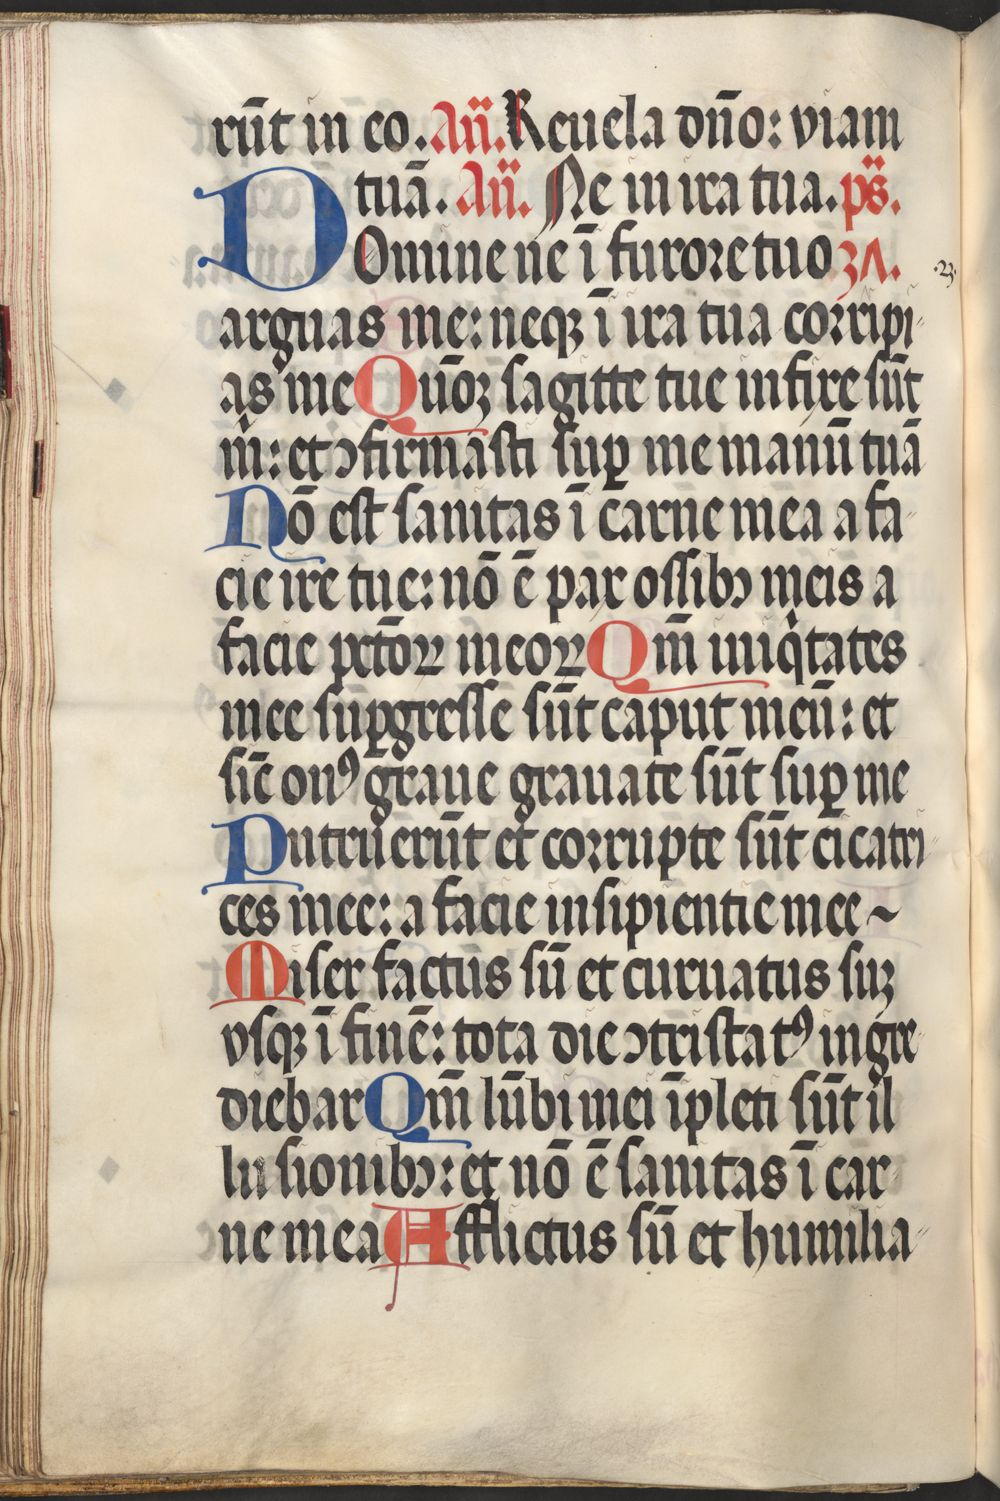 rūt in eo. Añ. Reuela dño: viam
tuā. Añ. Ne in ira tua. ps̄.
Domine ne ī furore tuo 3Λ.
arguas me: neqꝫ ī ira tua corripi
as me Quōꝫ sagitte tue infixe sūt
m̊: et ꝯfirmasti suꝑ me manū tuā
Nō est sanitas ī carne mea a fa
cie ire tue: nō ē pax ossibꝫ meis a
facie pctōꝝ meoꝝ Qm̄ iniq̇tates
mee suꝑgresse sūt caput meū: et
sic̄ onꝰ graue grauate sūt suꝑ me
Putruerūt et corrupte sūt cicatri
ces mee: a facie insipientie mee ~
Miser factus sū et curuatus suꝫ
vsqꝫ ī finē: tota die ꝯtristatꝰ ingre
diebar Qm̄ lūbi mei īpleti sūt il
lusionibꝫ: et nō ē sanitas ī car
ne mea Afflictus sū et humilia